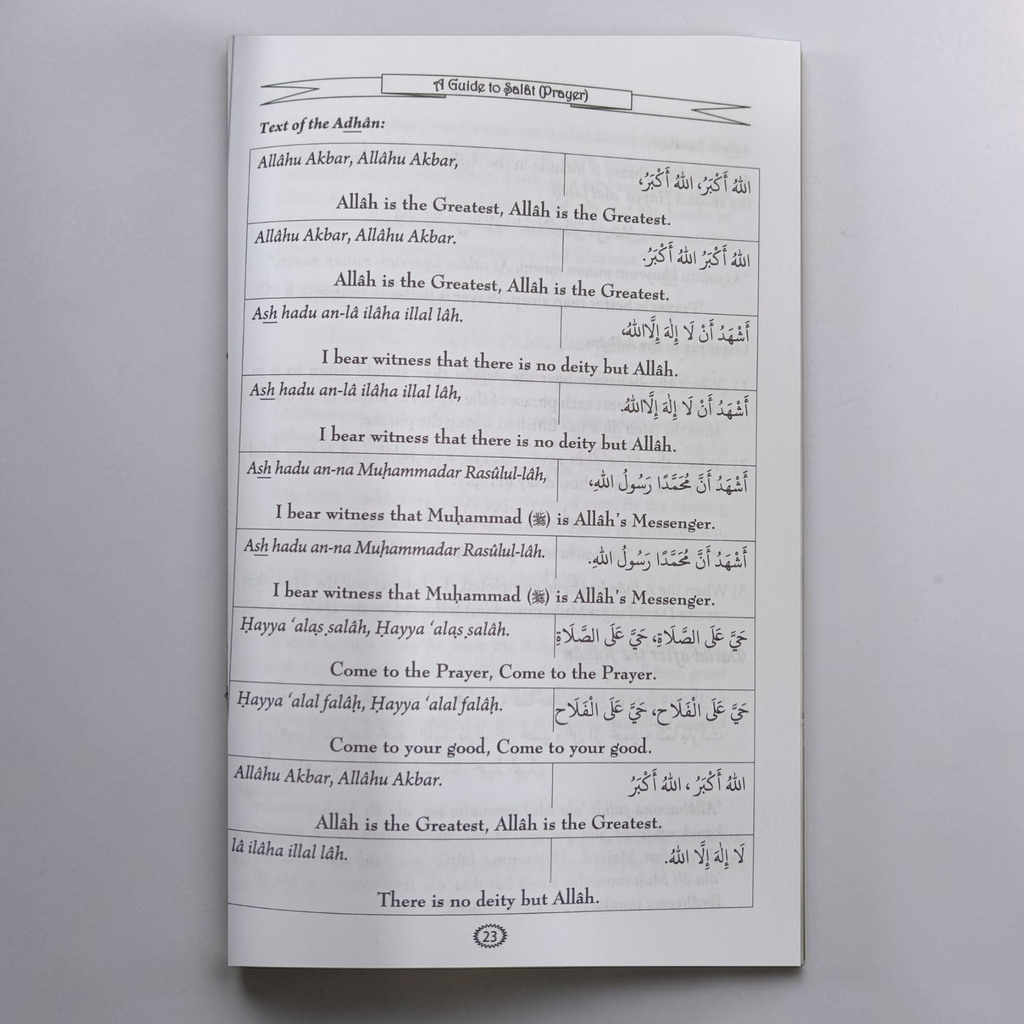 A Guide to Ṣalât (Prayer)
Text of the Adhân:
Allâhu Akbar, Allâhu Akbar,
اللهُ أَكْبَرُ، اللهُ أَكْبَرُ،
Allâh is the Greatest, Allâh is the Greatest.
Allâhu Akbar, Allâhu Akbar.
اللهُ أَكْبَرُ اللهُ أَكْبَرُ.
Allâh is the Greatest, Allâh is the Greatest.
Ash hadu an-lâ ilâha illal lâh.
أَشْهَدُ أَنْ لَا إِلٰهَ إِلَّااللهُ،
I bear witness that there is no deity but Allâh.
Ash hadu an-lâ ilâha illal lâh,
أَشْهَدُ أَنْ لَا إِلٰهَ إِلَّااللهُ.
I bear witness that there is no deity but Allâh.
Ash hadu an-na Muḥammadar Rasûlul-lâh,
أَشْهَدُ أَنَّ مُحَمَّدًا رَسُولُ اللهِ،
I bear witness that Muḥammad (ﷺ) is Allâh's Messenger.
Ash hadu an-na Muḥammadar Rasûlul-lâh.
أَشْهَدُ أَنَّ مُحَمَّدًا رَسُولُ اللهِ.
I bear witness that Muḥammad (ﷺ) is Allâh's Messenger.
Ḥayya ‘alaṣ ṣalâh, Ḥayya ‘alaṣ ṣalâh.
حَيَّ عَلَى الصَّلَاةِ، حَيَّ عَلَى الصَّلَاةِ
Come to the Prayer, Come to the Prayer.
Ḥayya ‘alal falâḥ, Ḥayya ‘alal falâḥ.
حَيَّ عَلَى الْفَلَاح، حَيَّ عَلَى الْفَلَاح
Come to your good, Come to your good.
Allâhu Akbar, Allâhu Akbar.
اللهُ أَكْبَرُ ، اللهُ أَكْبَرُ
Allâh is the Greatest, Allâh is the Greatest.
lâ ilâha illal lâh.
لَا إِلٰهَ إِلَّا اللهُ.
There is no deity but Allâh.
23